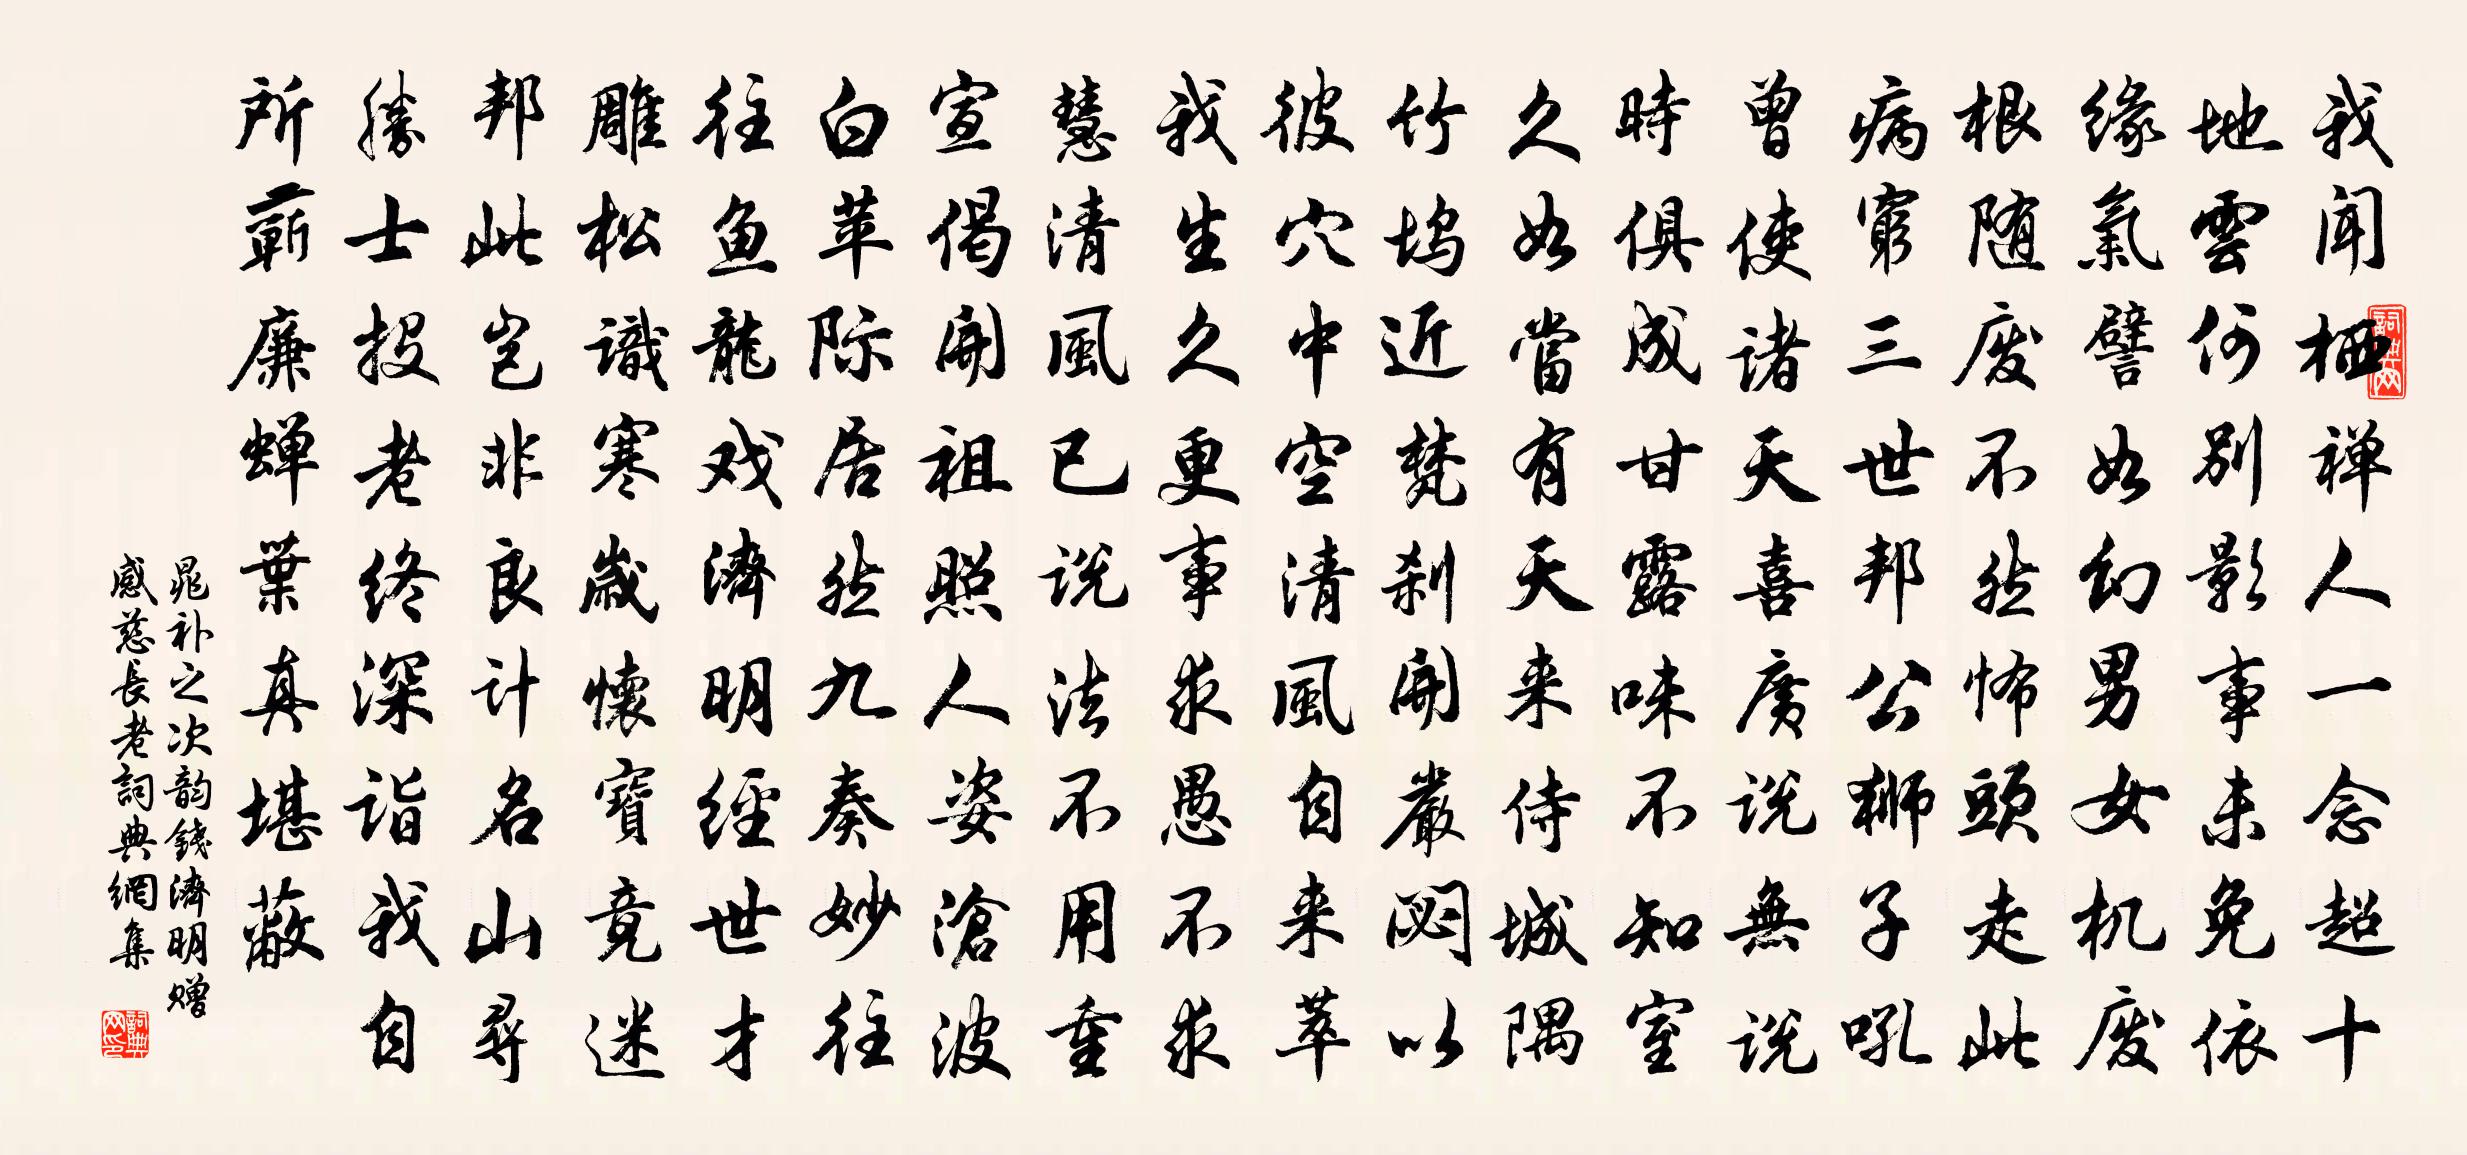 我聞栖禅人一念超十
地雲何別影事未免依
緣氣譬如幻男女机废
根随废不然怖頭走此
病窮三世邦公狮子吼
曾使诸天喜廣说無说
時俱成甘露味不知室
久如當有天来侍城隅
竹坞近梵刹開嚴閟以
彼穴中空清風自来萃
我生久更事求愚不求
慧清風已说法不用重
宣偈開祖照人姿滄波
白苹际居然九奏妙往
往鱼龍戏濟明經世才
雕松識寒歲懷寶竟迷
邦此岂非良计名山尋
勝士投老终深诣我自
所蕲廉蝉葉真堪蔽
晁补之次韵錢濟明赠
感慈長老詞典網集